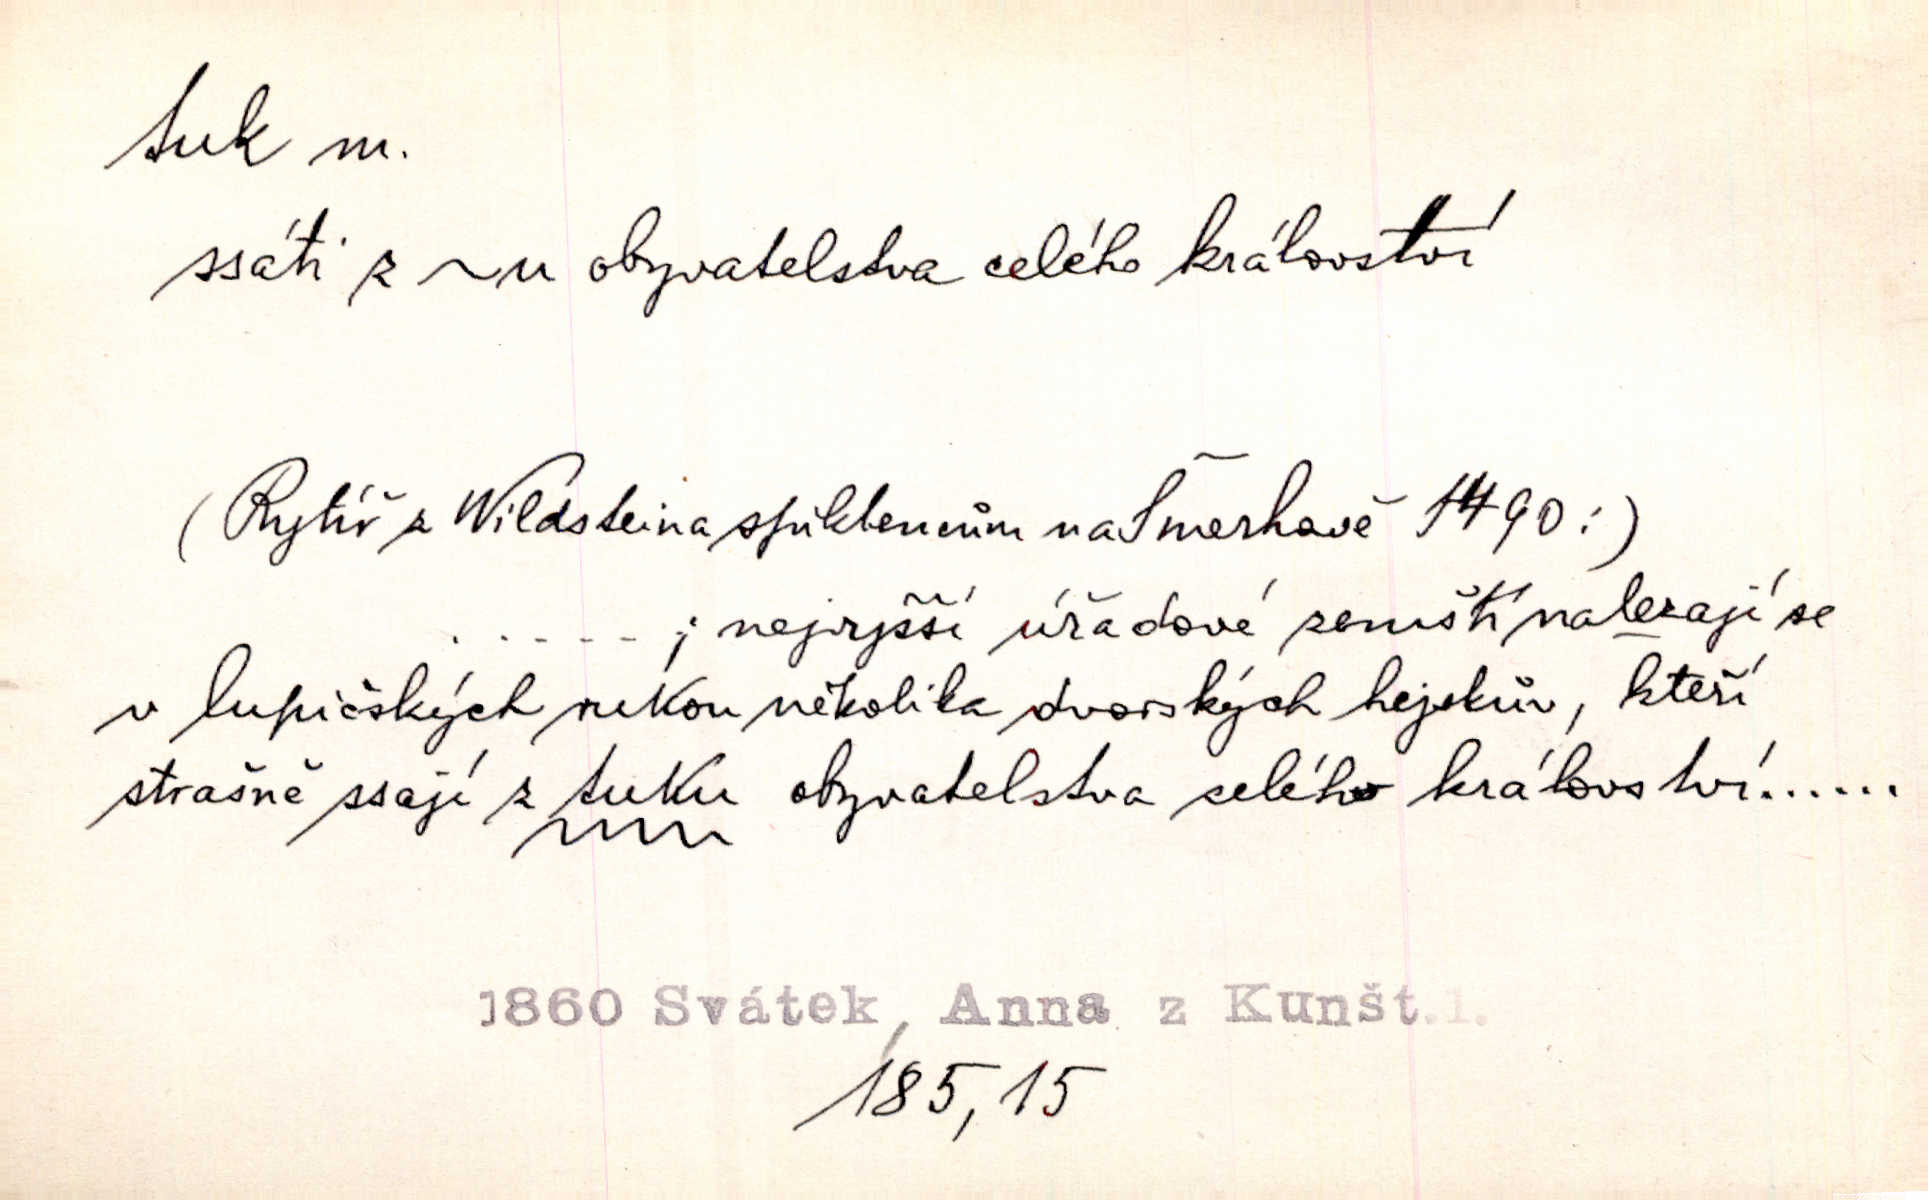 tuk m.
ssáti z ~u obyvatelstva celého království
(Rytíř z Wildsteina spiklencům na Šmerhově 1490:)
. - - - - ; nejvyšší úřadové zemští nalezají se
v lupičských rukou několika dvorských hejskův, kteří
strašně ssají z tuku obyvatelstva celého království......
1860 Svátek, Anna z Kunšt.1.
185,15